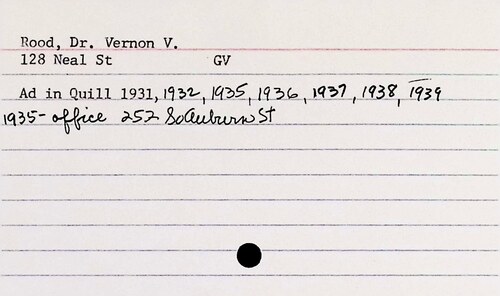 Rood, Dr. Vernon V.
128 Neal St GV
Ad in Quill 1931, 1932, 1935, 1936, 1937, 1938, 1939
1935- office 252 So Auburn St